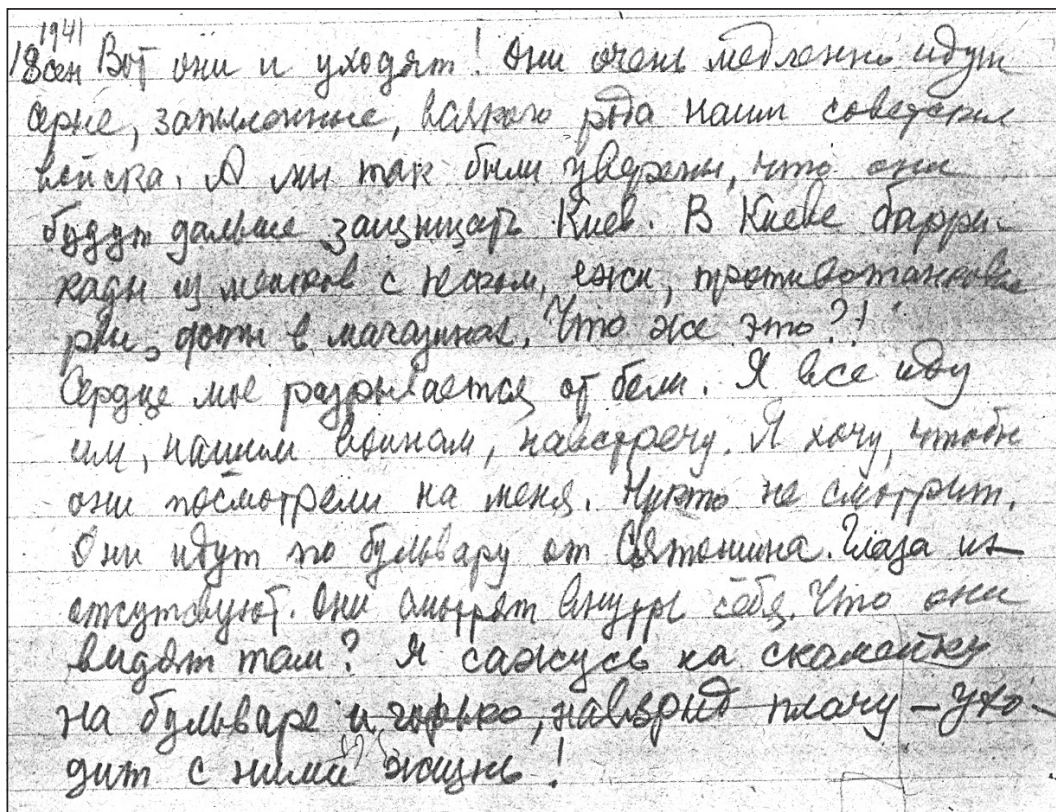 1941
18 сен Вот они и уходят! Они очень медленно идут
серые, запыленные, всякого рода наши советские
войска. А мы так были уверены, что они
будут дальше защищать Киев. В Киеве барри-
кады из мешков с песком, ежи, противотанковые
рвы, доты в магазинах. Что же это?!
Сердце мое разрывается от боли. Я все иду
им, нашим воинам, навстречу. Я хочу, чтобы
они посмотрели на меня. Никто не смотрит.
Они идут по бульвару от Святошина. Глаза их
отсутствуют. Они смотрят внутрь себя. Что они
видят там? Я сажусь на скамейку
на бульваре и горько, навзрыд плачу – ухо-
дит с ними жизнь!